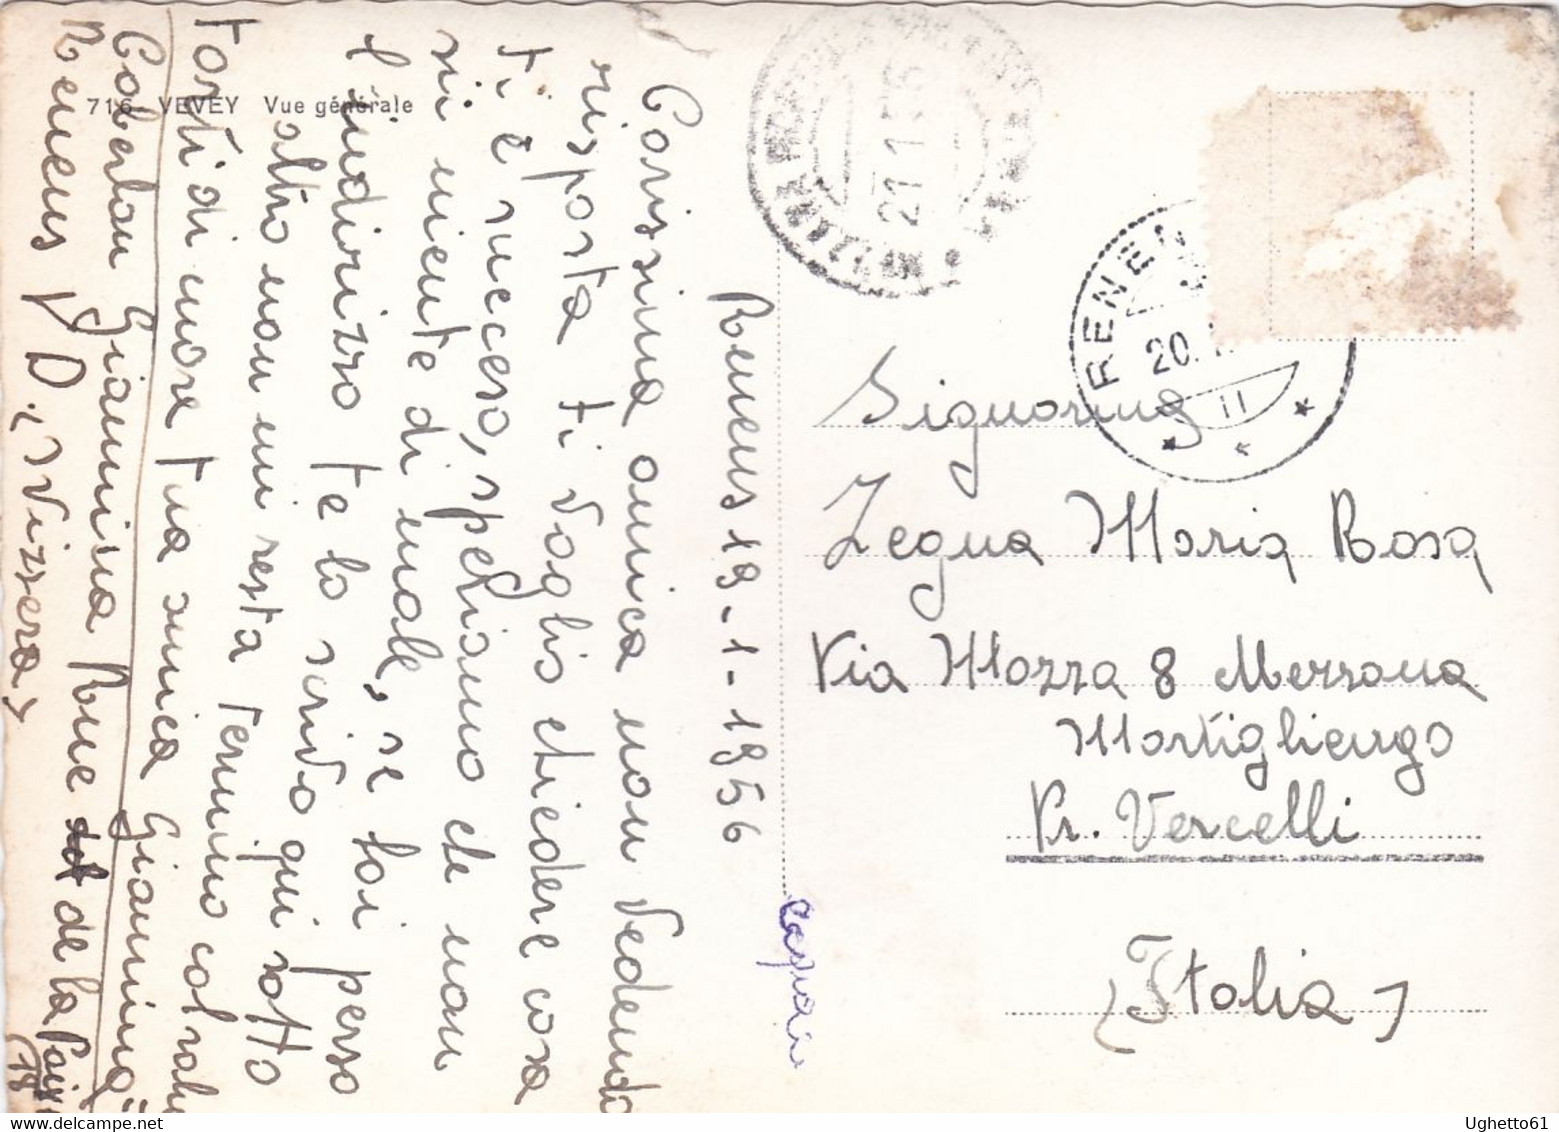 716 - VEVEY Vue générale
Renens 19-1-1956
Carissima amica non vedendo
risposta ti voglio chiedere cosa
ti è sucesso, speriamo che non
sii niente di male, se lai perso
l'indirizzo te lo scrivo qui sotto
altro non mi resta termino col
farti di nuove tua amica Giannina
Cobertan Giannina Rue de la Paix
Renens VD. (Svizzera)
(18
Signorina
Zegna Maria Rosa
Via Mozza 8 Mezzana
Mortigliengo
Pr. Vercelli
(Italia)
RENENS
20. 1.
11
21 1 56
Ughetto61